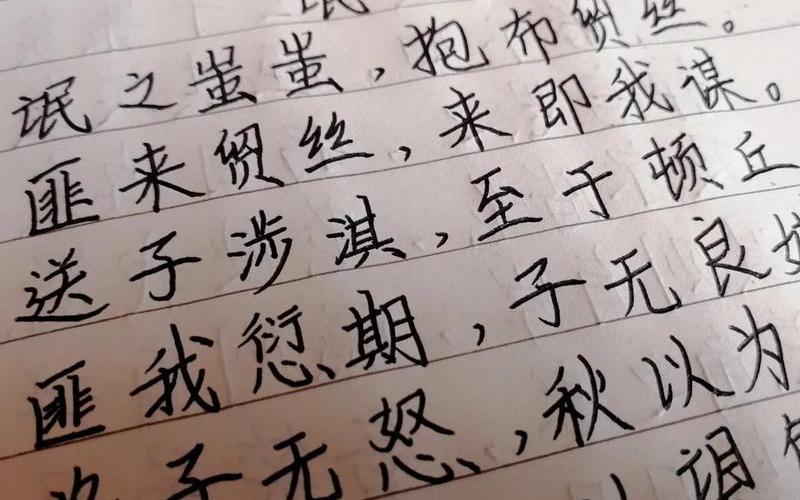 氓
氓之蚩蚩，抱布贸丝。
匪来贸丝，来即我谋。
送子涉淇，至于顿丘
匪我愆期，子无良媒
将子无怒，秋以为